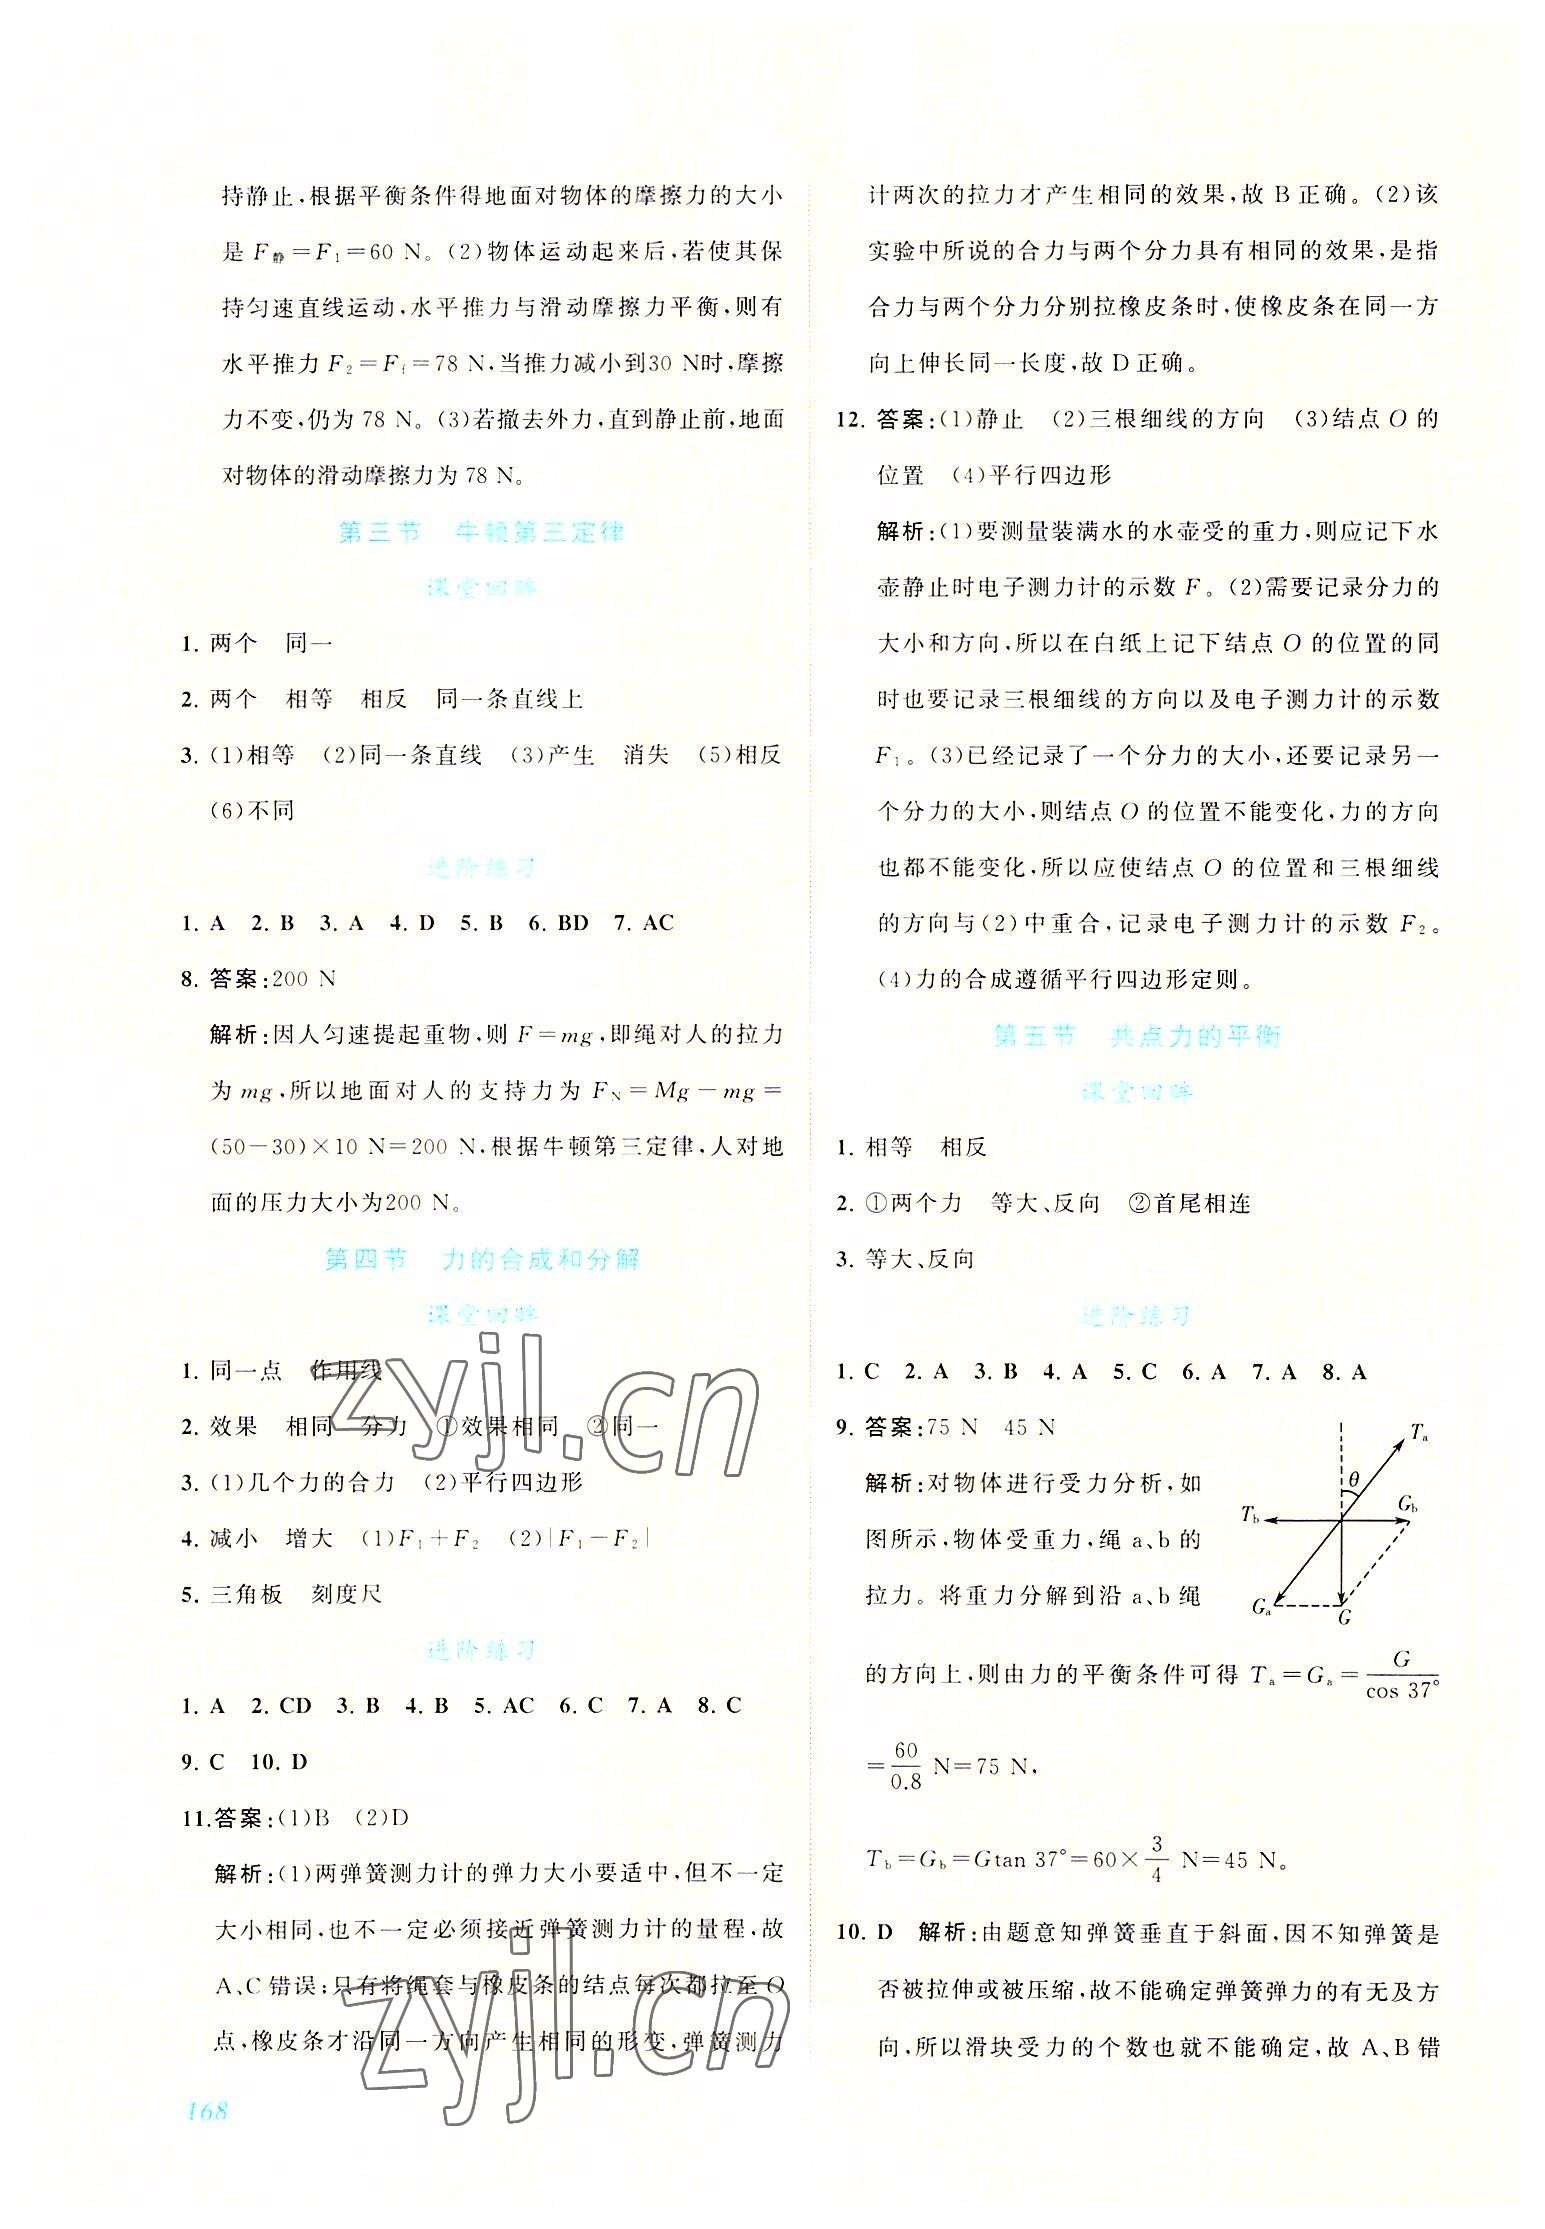 持静止,根据平衡条件得地面对物体的摩擦力的大小
是 F静=F₁=60 N。(2)物体运动起来后,若使其保
持匀速直线运动,水平推力与滑动摩擦力平衡,则有
水平推力 F₂=Ff=78 N,当推力减小到30 N时,摩擦
力不变,仍为 78 N。(3)若撤去外力,直到静止前,地面
对物体的滑动摩擦力为 78 N。
第三节 牛顿第三定律
课堂回眸
1. 两个 同一
2. 两个 相等 相反 同一条直线上
3. (1)相等 (2)同一条直线 (3)产生 消失 (5)相反
(6)不同
进阶练习
1. A 2. B 3. A 4. D 5. B 6. BD 7. AC
8. 答案:200 N
解析:因人匀速提起重物,则 F=mg,即绳对人的拉力
为 mg,所以地面对人的支持力为 FN=Mg-mg=
(50-30)×10 N=200 N,根据牛顿第三定律,人对地
面的压力大小为200 N。
第四节 力的合成和分解
课堂回眸
1. 同一点 作用线
2. 效果 相同 分力 ①效果相同 ②同一
3. (1)几个力的合力 (2)平行四边形
4. 减小 增大 (1)F₁+F₂ (2)|F₁-F₂|
5. 三角板 刻度尺
进阶练习
1. A 2. CD 3. B 4. B 5. AC 6. C 7. A 8. C
9. C 10. D
11.答案:(1)B (2)D
解析:(1)两弹簧测力计的弹力大小要适中,但不一定
大小相同,也不一定必须接近弹簧测力计的量程,故
A、C错误;只有将绳套与橡皮条的结点每次都拉至O
点,橡皮条才沿同一方向产生相同的形变,弹簧测力
168
计两次的拉力才产生相同的效果,故 B 正确。(2)该
实验中所说的合力与两个分力具有相同的效果,是指
合力与两个分力分别拉橡皮条时,使橡皮条在同一方
向上伸长同一长度,故 D 正确。
12. 答案:(1)静止 (2)三根细线的方向 (3)结点 O 的
位置 (4)平行四边形
解析:(1)要测量装满水的水壶受的重力,则应记下水
壶静止时电子测力计的示数 F。(2)需要记录分力的
大小和方向,所以在白纸上记下结点 O 的位置的同
时也要记录三根细线的方向以及电子测力计的示数
F₁。(3)已经记录了一个分力的大小,还要记录另一
个分力的大小,则结点 O 的位置不能变化,力的方向
也都不能变化,所以应使结点 O 的位置和三根细线
的方向与(2)中重合,记录电子测力计的示数 F₂。
(4)力的合成遵循平行四边形定则。
第五节 共点力的平衡
课堂回眸
1. 相等 相反
2. ①两个力 等大、反向 ②首尾相连
3. 等大、反向
进阶练习
1. C 2. A 3. B 4. A 5. C 6. A 7. A 8. A
9. 答案:75 N 45 N
解析:对物体进行受力分析,如
图所示,物体受重力,绳 a、b 的
拉力。将重力分解到沿 a、b 绳
Ta
θ
Tb
Gb
Ga
G
的方向上,则由力的平衡条件可得 Ta=Ga=G/cos 37°
=60/0.8 N=75 N,
Tb=Gb=Gtan 37°=60×3/4 N=45 N。
10. D 解析:由题意知弹簧垂直于斜面,因不知弹簧是
否被拉伸或被压缩,故不能确定弹簧弹力的有无及方
向,所以滑块受力的个数也就不能确定,故 A、B 错
zyjl.cn
zyjl.cn